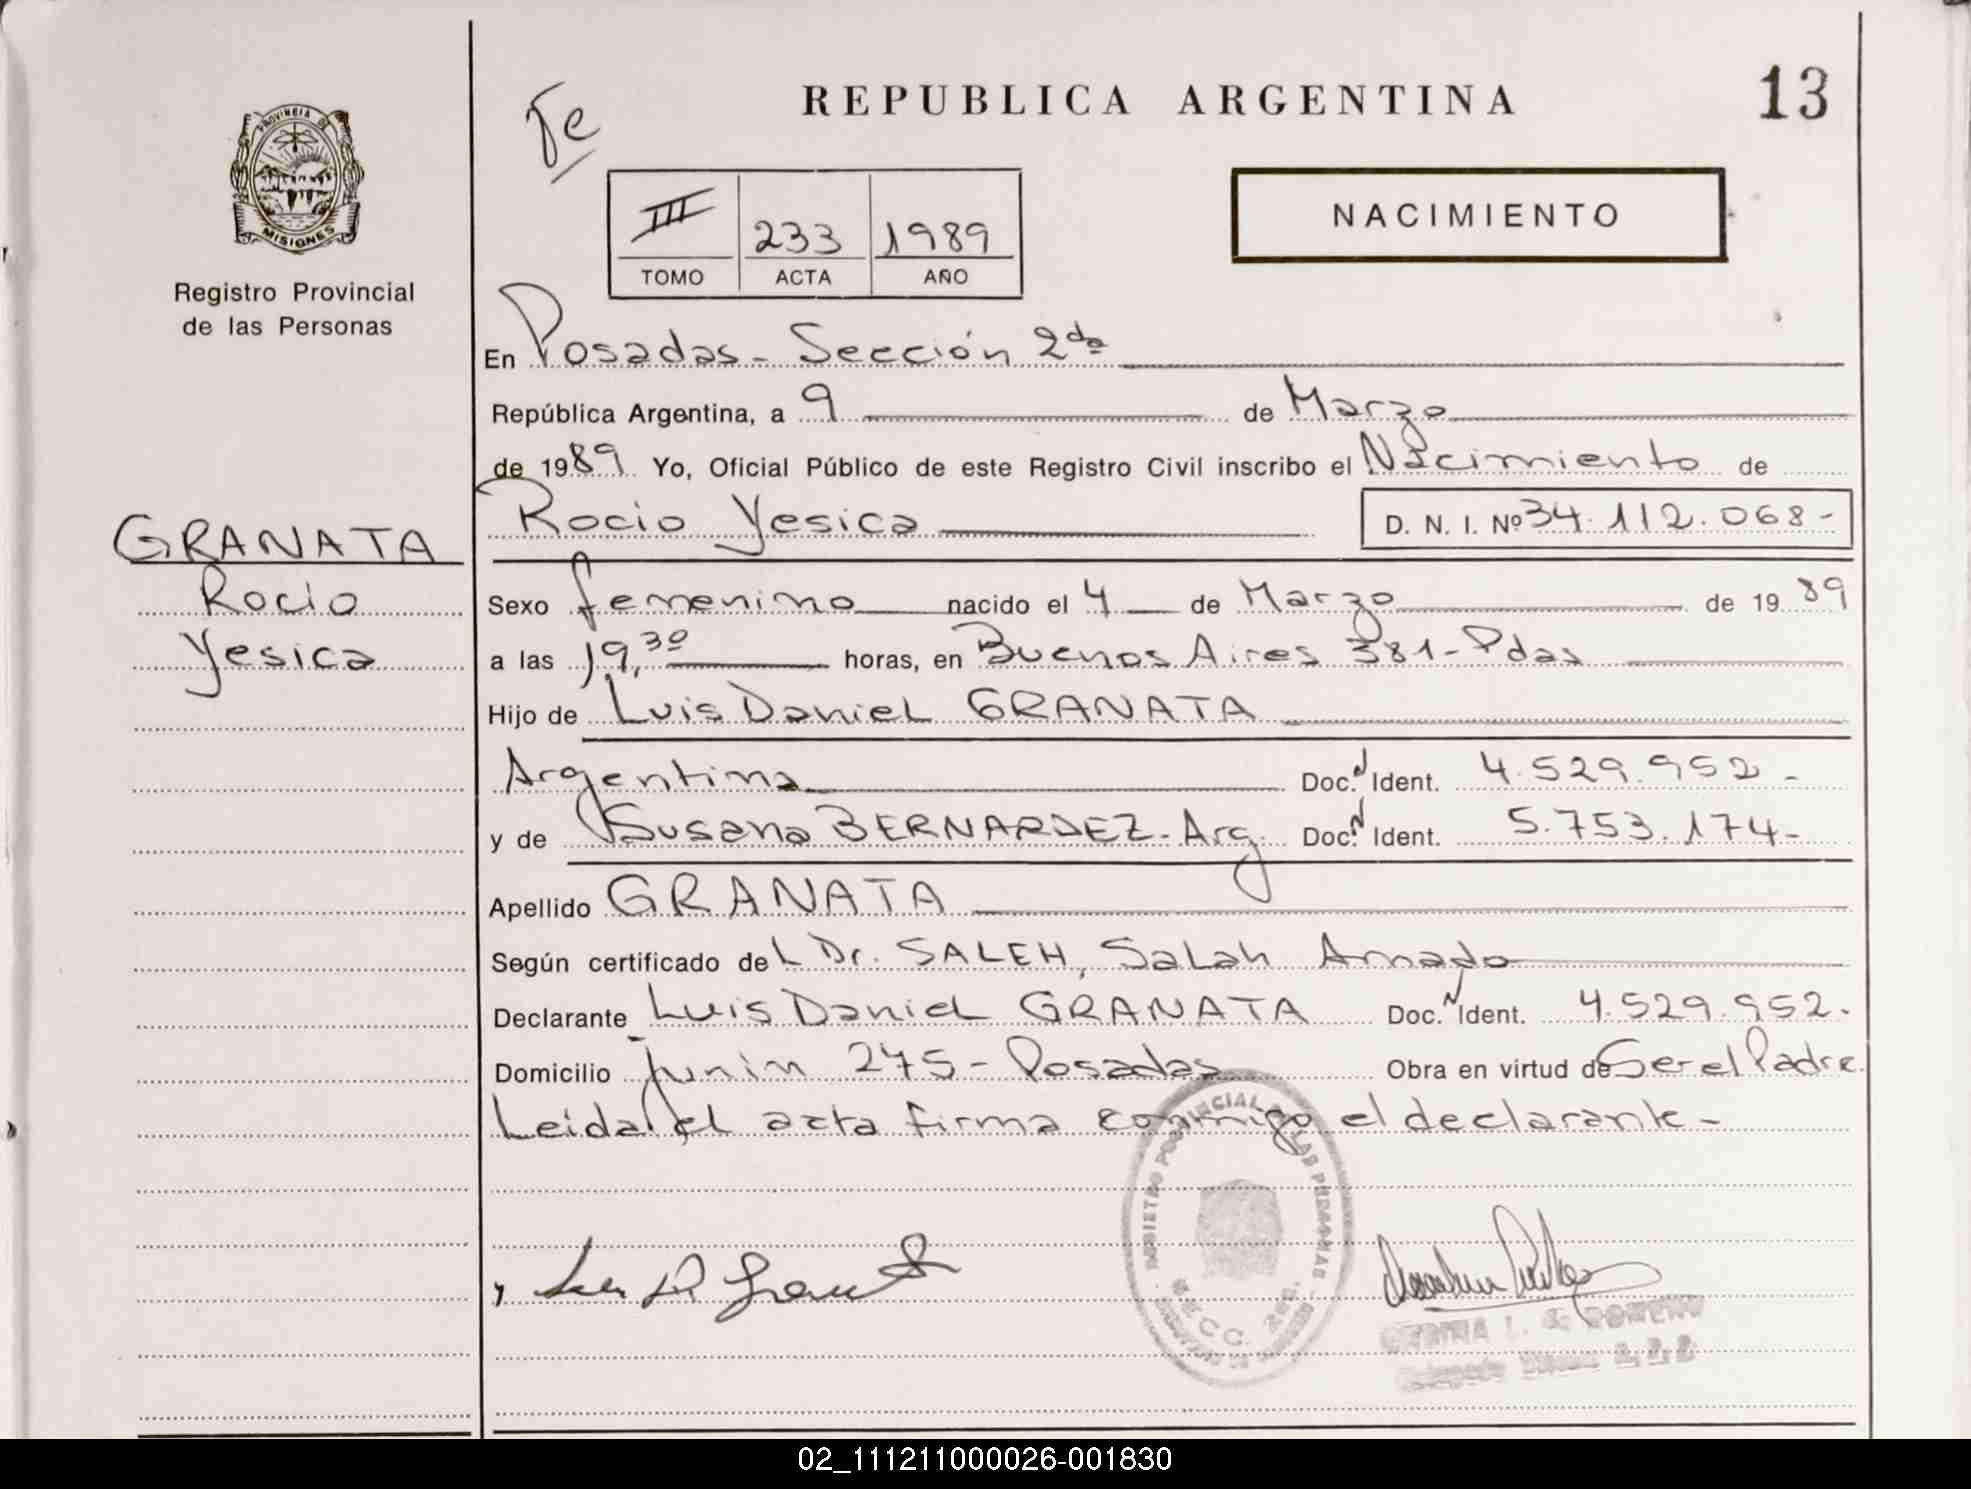 REPUBLICA ARGENTINA
13
PROVINCIA DE
MISIONES
Registro Provincial
de las Personas
III 233 1989
TOMO ACTA AÑO
NACIMIENTO
En Posadas - Sección 2da
República Argentina, a 9 de Marzo
de 1989 Yo, Oficial Público de este Registro Civil inscribo el Nacimiento de
Rocio Yesica D. N. I. Nº 34.112.068-
GRANATA
Rocio
Yesica
Sexo femenino nacido el 4 de Marzo de 1989
a las 19,30 horas, en Buenos Aires 381-Pdas
Hijo de Luis Daniel GRANATA
Argentina Doc. Ident. 4.529.952-
y de Susana BERNARDEZ-Arg. Doc. Ident. 5.753.174-
Apellido GRANATA
Según certificado del Dr. SALEH, Salah Amado
Declarante Luis Daniel GRANATA Doc. Ident. 4.529.952.
Domicilio Junin 275 - Posadas Obra en virtud de Ser el Padre.
Leida el acta firma conmigo el declarante-
SECC. 2da.
02_111211000026-001830